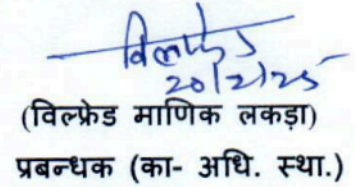 विल्फ्रेड
20/2/25
(विल्फ्रेड माणिक लकड़ा)
प्रबन्धक (का- अधि. स्था.)